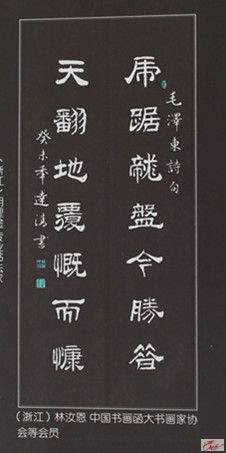 虎踞龍盤今勝昔
毛澤東詩句
天翻地覆慨而慷
癸未年達書
（浙江）林汝恩 中国书画函大书画家协
会等会员